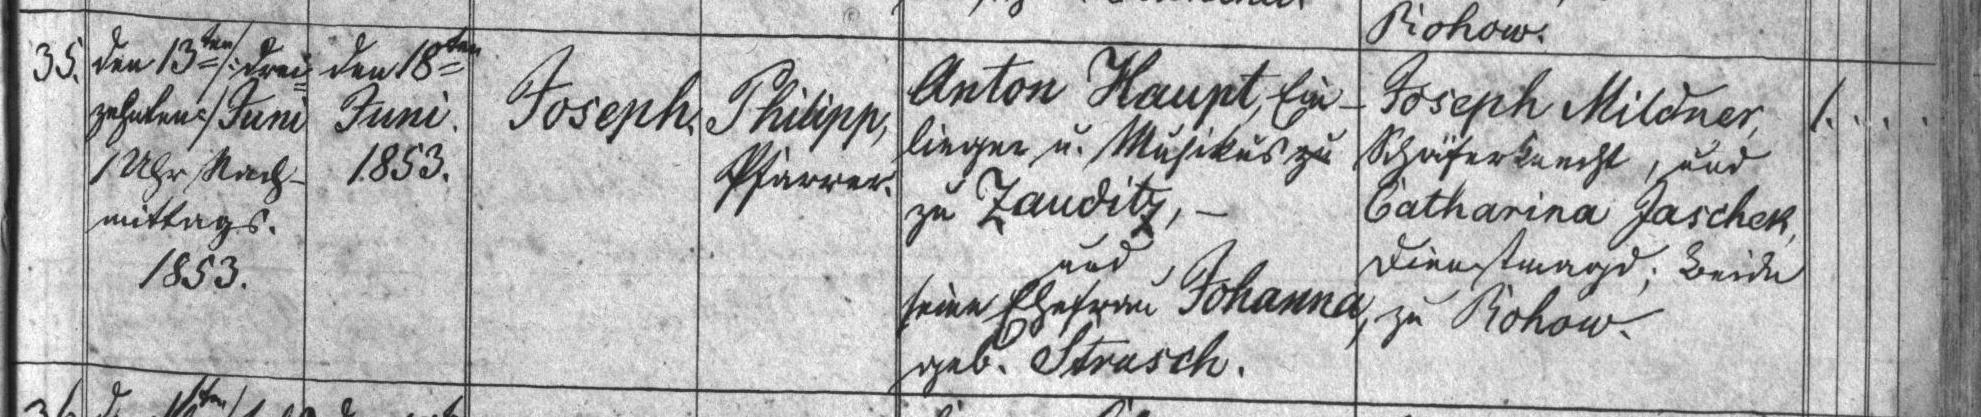 Rohow.
35.
den 13ten /: drei=
zehnten :/ Juni
1 Uhr Nach-
mittags.
1853.
den 18ten
Juni.
1853.
Joseph.
Philipp,
Pfarrer.
Anton Haupt, Ein-
lieger u. Musikus zu
zu Zauditz, —
und
seine Ehefrau Johanna,
geb. Strasch.
Joseph Mildner,
Schäferknecht, und
Catharina Jaschek,
Dienstmagd; beide
zu Rohow.
1. . . .